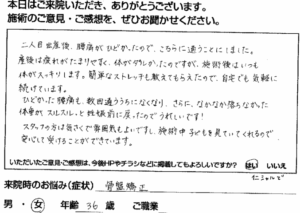 本日はご来院いただき、ありがとうございます。
施術のご意見・ご感想を、ぜひお聞かせください。
二人目出産後、腰痛がひどかったので、こちらに通うことにしました。
産後は疲れがたまりやすく、体がダルかったのですが、施術後はいつも
体がスッキリします。簡単なストレッチも教えてもらえたので、自宅でも気軽に
続けています。
ひどかった腰痛も、数回通ううちになくなり、さらに、なかなか落ちなかった
体重がスルスルと妊娠前に戻ったのでうれしいです！
スタッフの方は気さくで雰囲気もよいですし、施術中子どもを見ていてくれるので
安心して受けることができています。
いただいたご意見・ご感想は、今後HPやチラシなどに掲載してもよろしいですか？ はい いいえ
来院時のお悩み(症状) 骨盤矯正
男・女 年齢 36 歳 ご職業